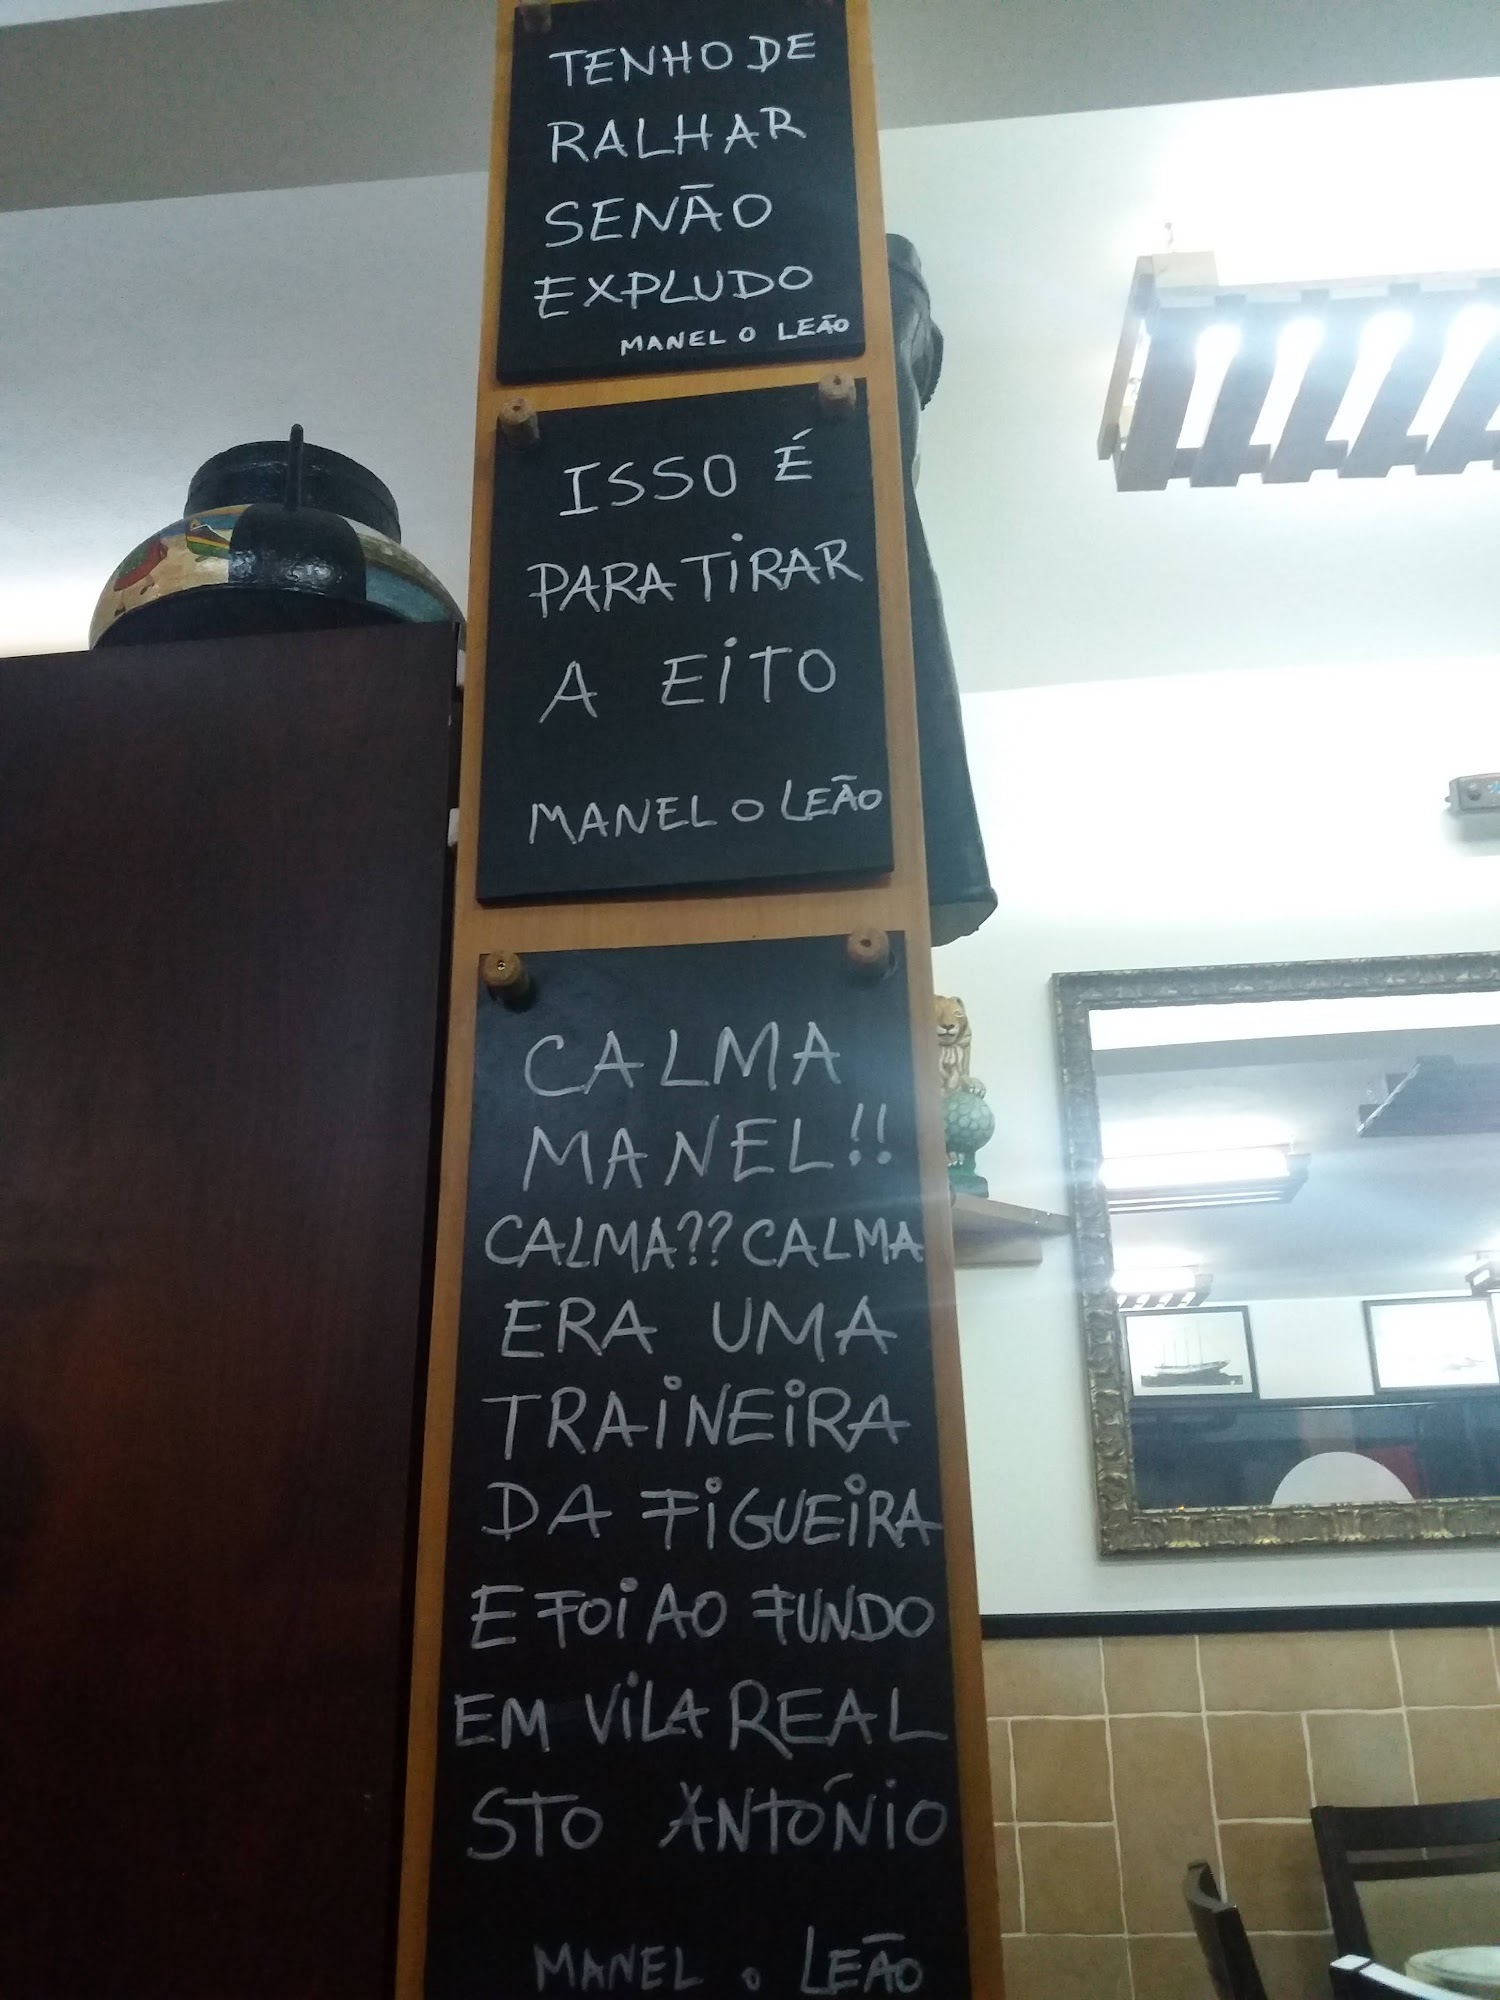 TENHO DE
RALHAR
SENÃO
EXPLUDO
MANEL O LEÃO
ISSO É
PARA TIRAR
A EITO
MANEL O LEÃO
CALMA
MANEL!!
CALMA?? CALMA
ERA UMA
TRAINEIRA
DA FIGUEIRA
E FOI AO FUNDO
EM VILA REAL
STO ANTÓNIO
MANEL O LEÃO